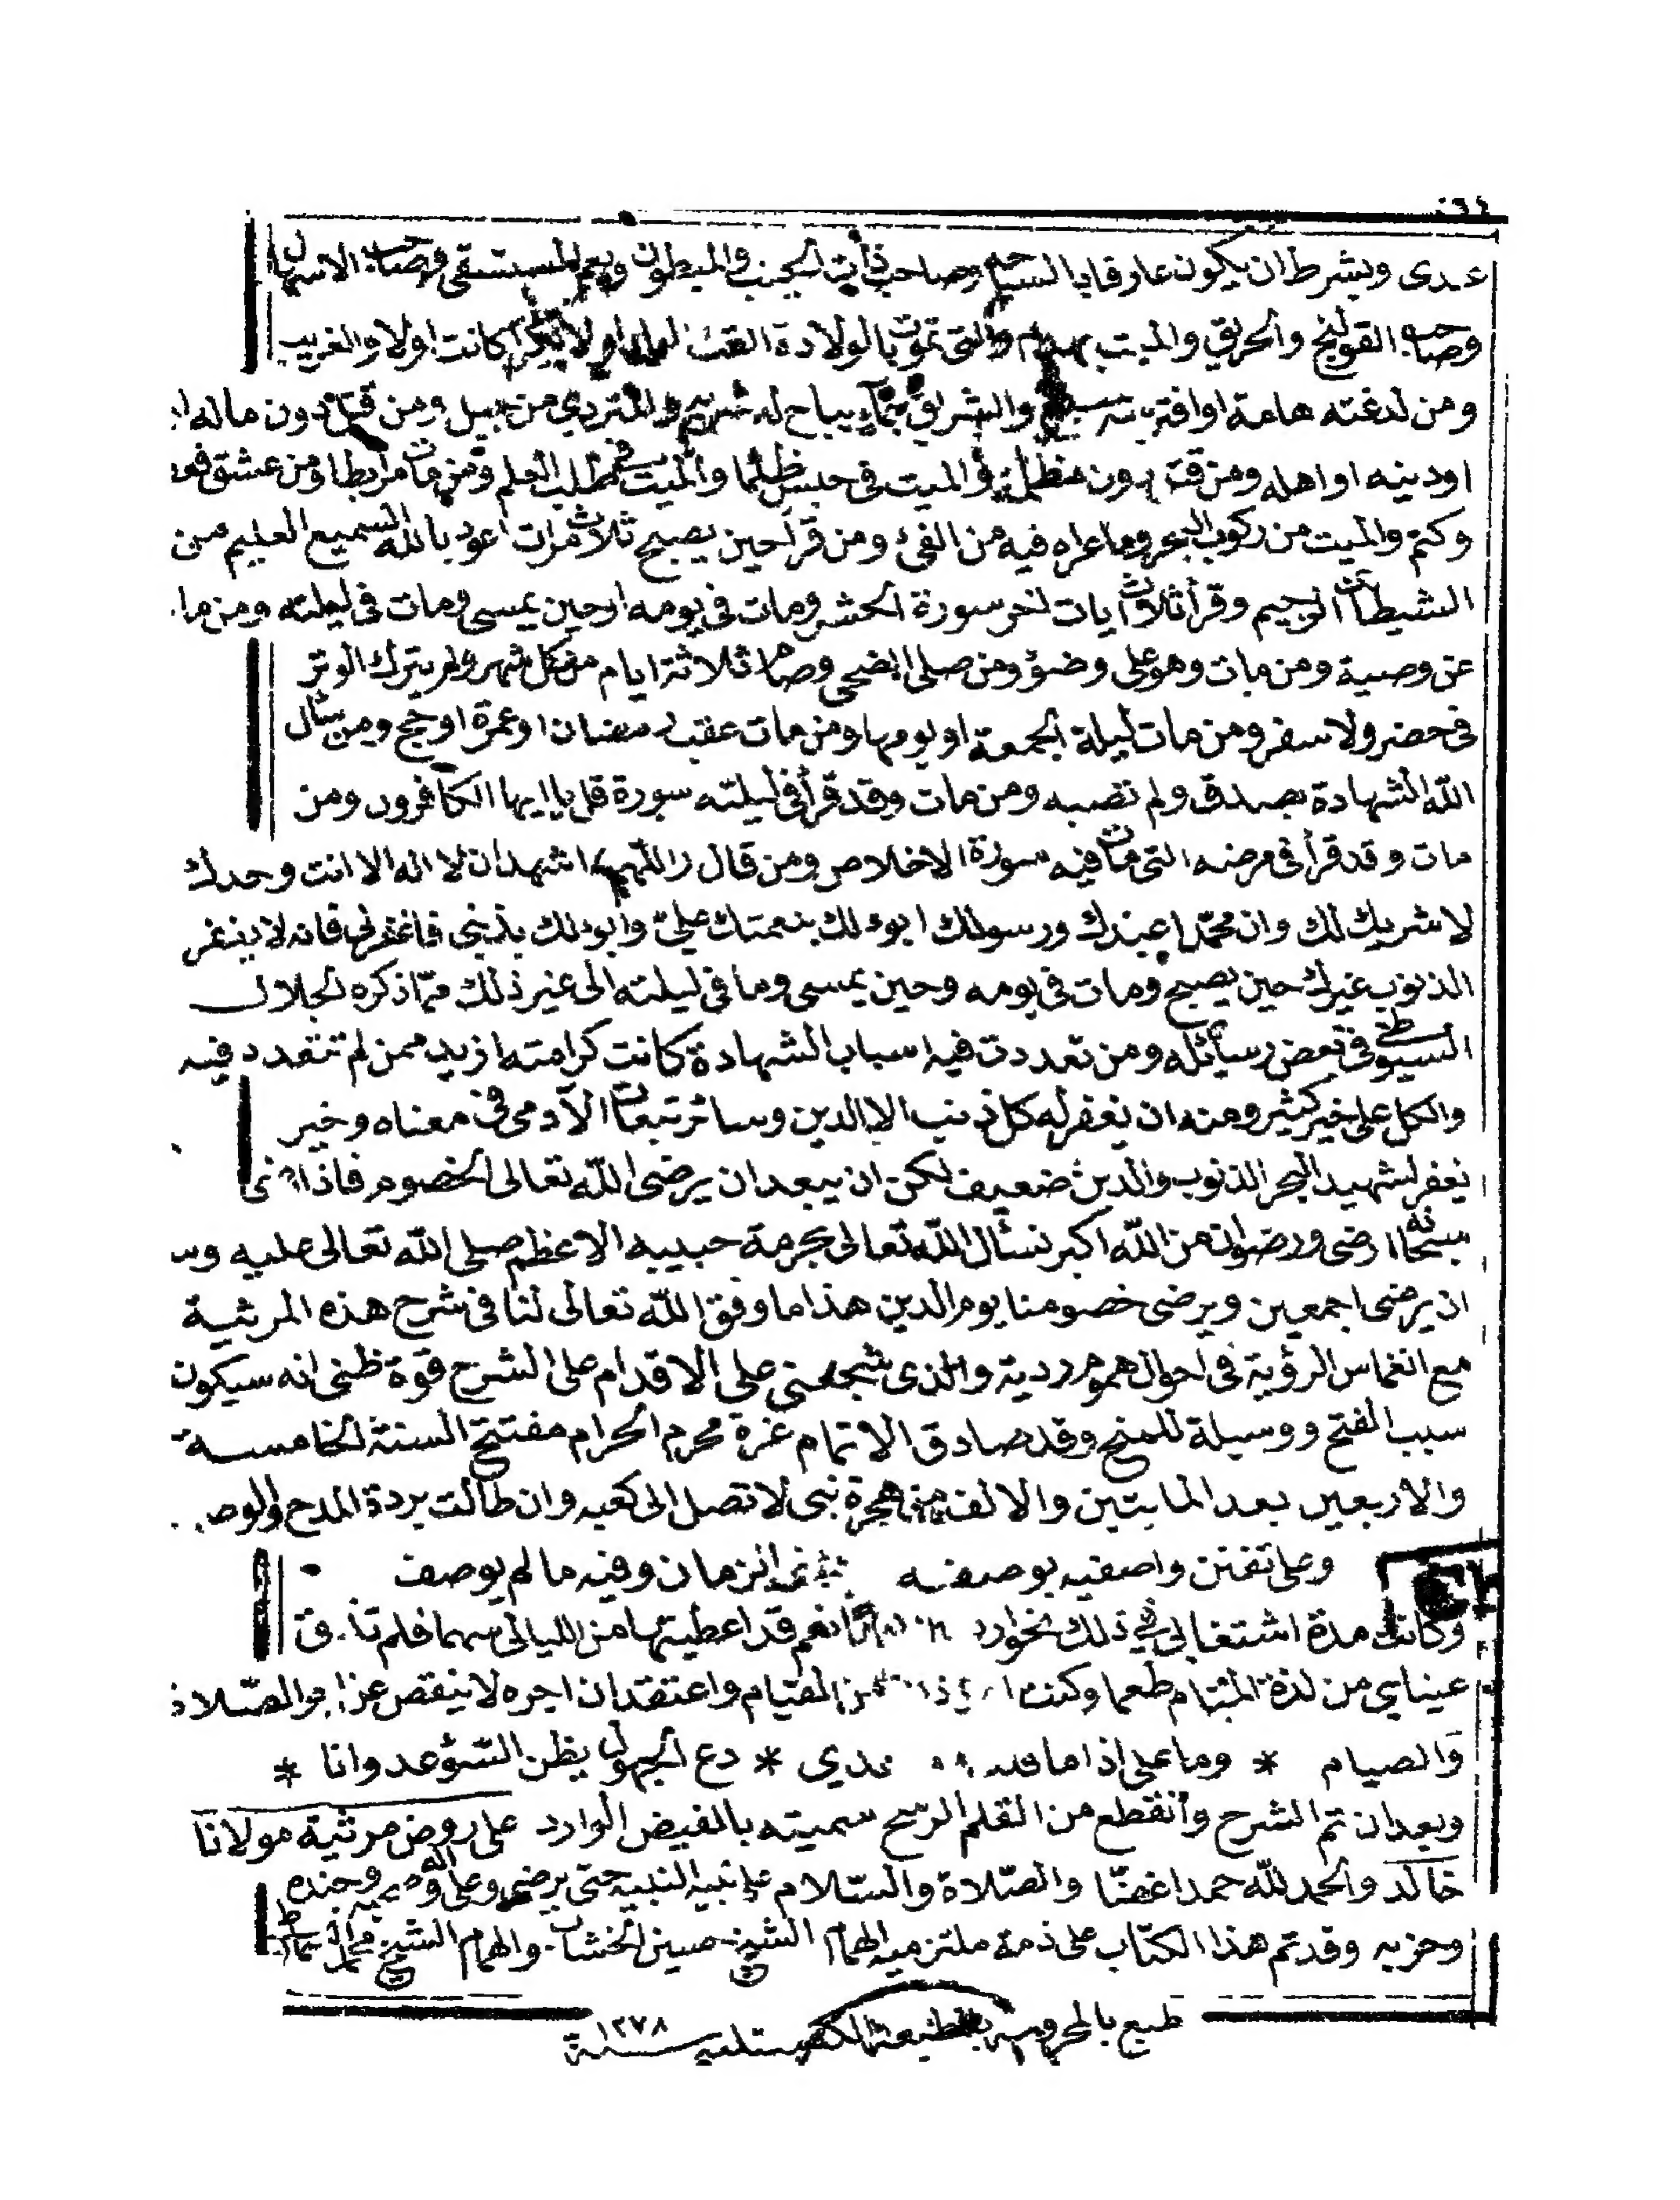 عدى وبشرط ان يكون عارفا بالسباحة وصاحب ذات الجنب والمبطون ويعم المستسقى وصاحب الاسهال
وصاحب القولنج والحريق والميت بهدم والتى تموت بالولادة القت اولا بكرا كانت اولا والغريب
ومن لدغته هامة او افترسه سبع والشراق بماء يباح له شربه والمتردى من جبل ومن قتل دون ماله او
او دينه او اهله ومن قتل دون مظلمة والميت فى حبس ظلما والميت فى طلب العلم ومن مات مرابطا ومن عشق فعف
وكتم والميت من ركوب البحر وما عراه فيه من القئ ومن قرأ حين يصبح ثلاث مرات اعوذ بالله السميع العليم من
الشيطان الرجيم وقرأ ثلاث آيات اخر سورة الحشر ومات فى يومه او حين يمسى ومات فى ليلته ومن مات
عن وصية ومن مات وهو على وضوء ومن صلى الضحى وصام ثلاثة ايام من كل شهر ولم يترك الوتر
فى حضر ولا سفر ومن مات ليلة الجمعة او يومها ومن مات عقب رمضان او عمرة او حج ومن سأل
الله الشهادة بصدق ولم تصبه ومن مات وقد قرأ فى ليلته سورة قل يا ايها الكافرون ومن
مات وقد قرأ فى مرضه التى مات فيه سورة الاخلاص ومن قال اللهم اشهد ان لا اله الا انت وحدك
لا شريك لك وان محمدا عبدك ورسولك ابوء لك بنعمتك على وابوء لك بذنبى فاغفر لى فانه لا يغفر
الذنوب غيرك حين يصبح ومات فى يومه وحين يمسى وما فى ليلته الى غير ذلك مما ذكره الجلال
السيوطى فى بعض رسائله ومن تعددت فيه اسباب الشهادة كانت كرامته ازيد ممن لم تتعدد فيه
والكل على خير كثير ومنه ان يغفر له كل ذنب الا الدين وسائر تبعات الآدمى فى معناه وخير
يغفر لشهيد البحر الذنوب والدين ضعيف لكن ان يبعد ان يرضى الله تعالى الخصوم فاذا
سبحانه ارضى ورضوان من الله اكبر نسأل الله تعالى بحرمة حبيبه الاعظم صلى الله تعالى عليه وسلم
ان يرضى اجمعين ويرضى خصومنا يوم الدين هذا ما وفق الله تعالى لنا فى شرح هذه المرثية
مع انغماس الرؤية فى احوال هموم ردية والذى شجعنى على الاقدام على الشرح قوة ظنى انه سيكون
سبب الفتح ووسيلة للمنح وقد صادق الاتمام غرة محرم الحرام مفتتح السنة الخامسة
والاربعين بعد المايتين والالف من هجرة نبى لا تصل الى كعبه وان طالت بردة المدح والوصف
وعلى تفنن واصفيه بوصفه يفنى الزمان وفيه ما لم يوصف
وكانت مدة اشتغالى فى ذلك نحو نعم قد اعطيتها من الليالى سهما فلم تذق
عيناى من لذة المنام طعما وكنت من القيام واعتقد ان اجره لا ينقص عن اجر الصلاة
والصيام * وما على اذا ما قلت * دع الجهول يظن السؤ عدوانا *
وبعد ان تم الشرح وانقطع من القلم الرشح سميته بالفيض الوارد على روض مرثية مولانا
خالد والحمد لله حمدا غضا والصلاة والسلام على نبيه النبيه حتى يرضى وعلى آله وصحبه وجنده
وحزبه وقد تم هذا الكتاب على ذمة ملتزميه الهمام الشيخ حسين الخشاب والهمام الشيخ محمد
طبع بالمحروسة بالمطبعة الكستلية سنة ١٢٧٨